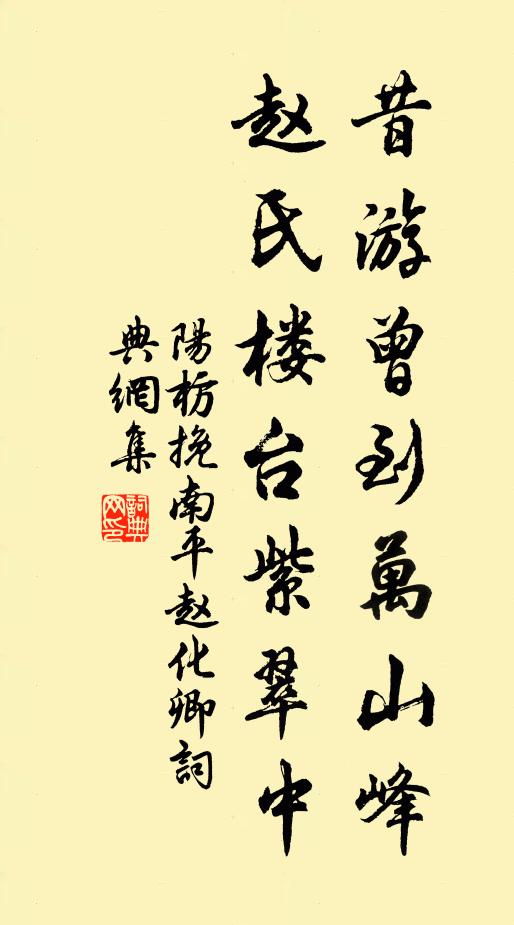 昔游曾到萬山峰
赵氏楼台紫翠中
陽枋挽南平赵化卿詞
典網集
詞典網印